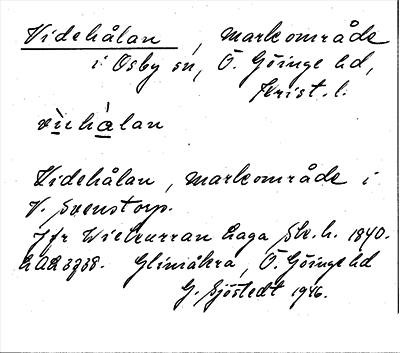 Videhålan, markområde
i Osby sn, Ö. Göinge hd,
Krist. l.
Videhålan, markområde i
V. Svenstorp.
Jfr Laga Skr. h. 1840.
Glimåkra, Ö. Göinge hd
G. Sjöstedt 1946.